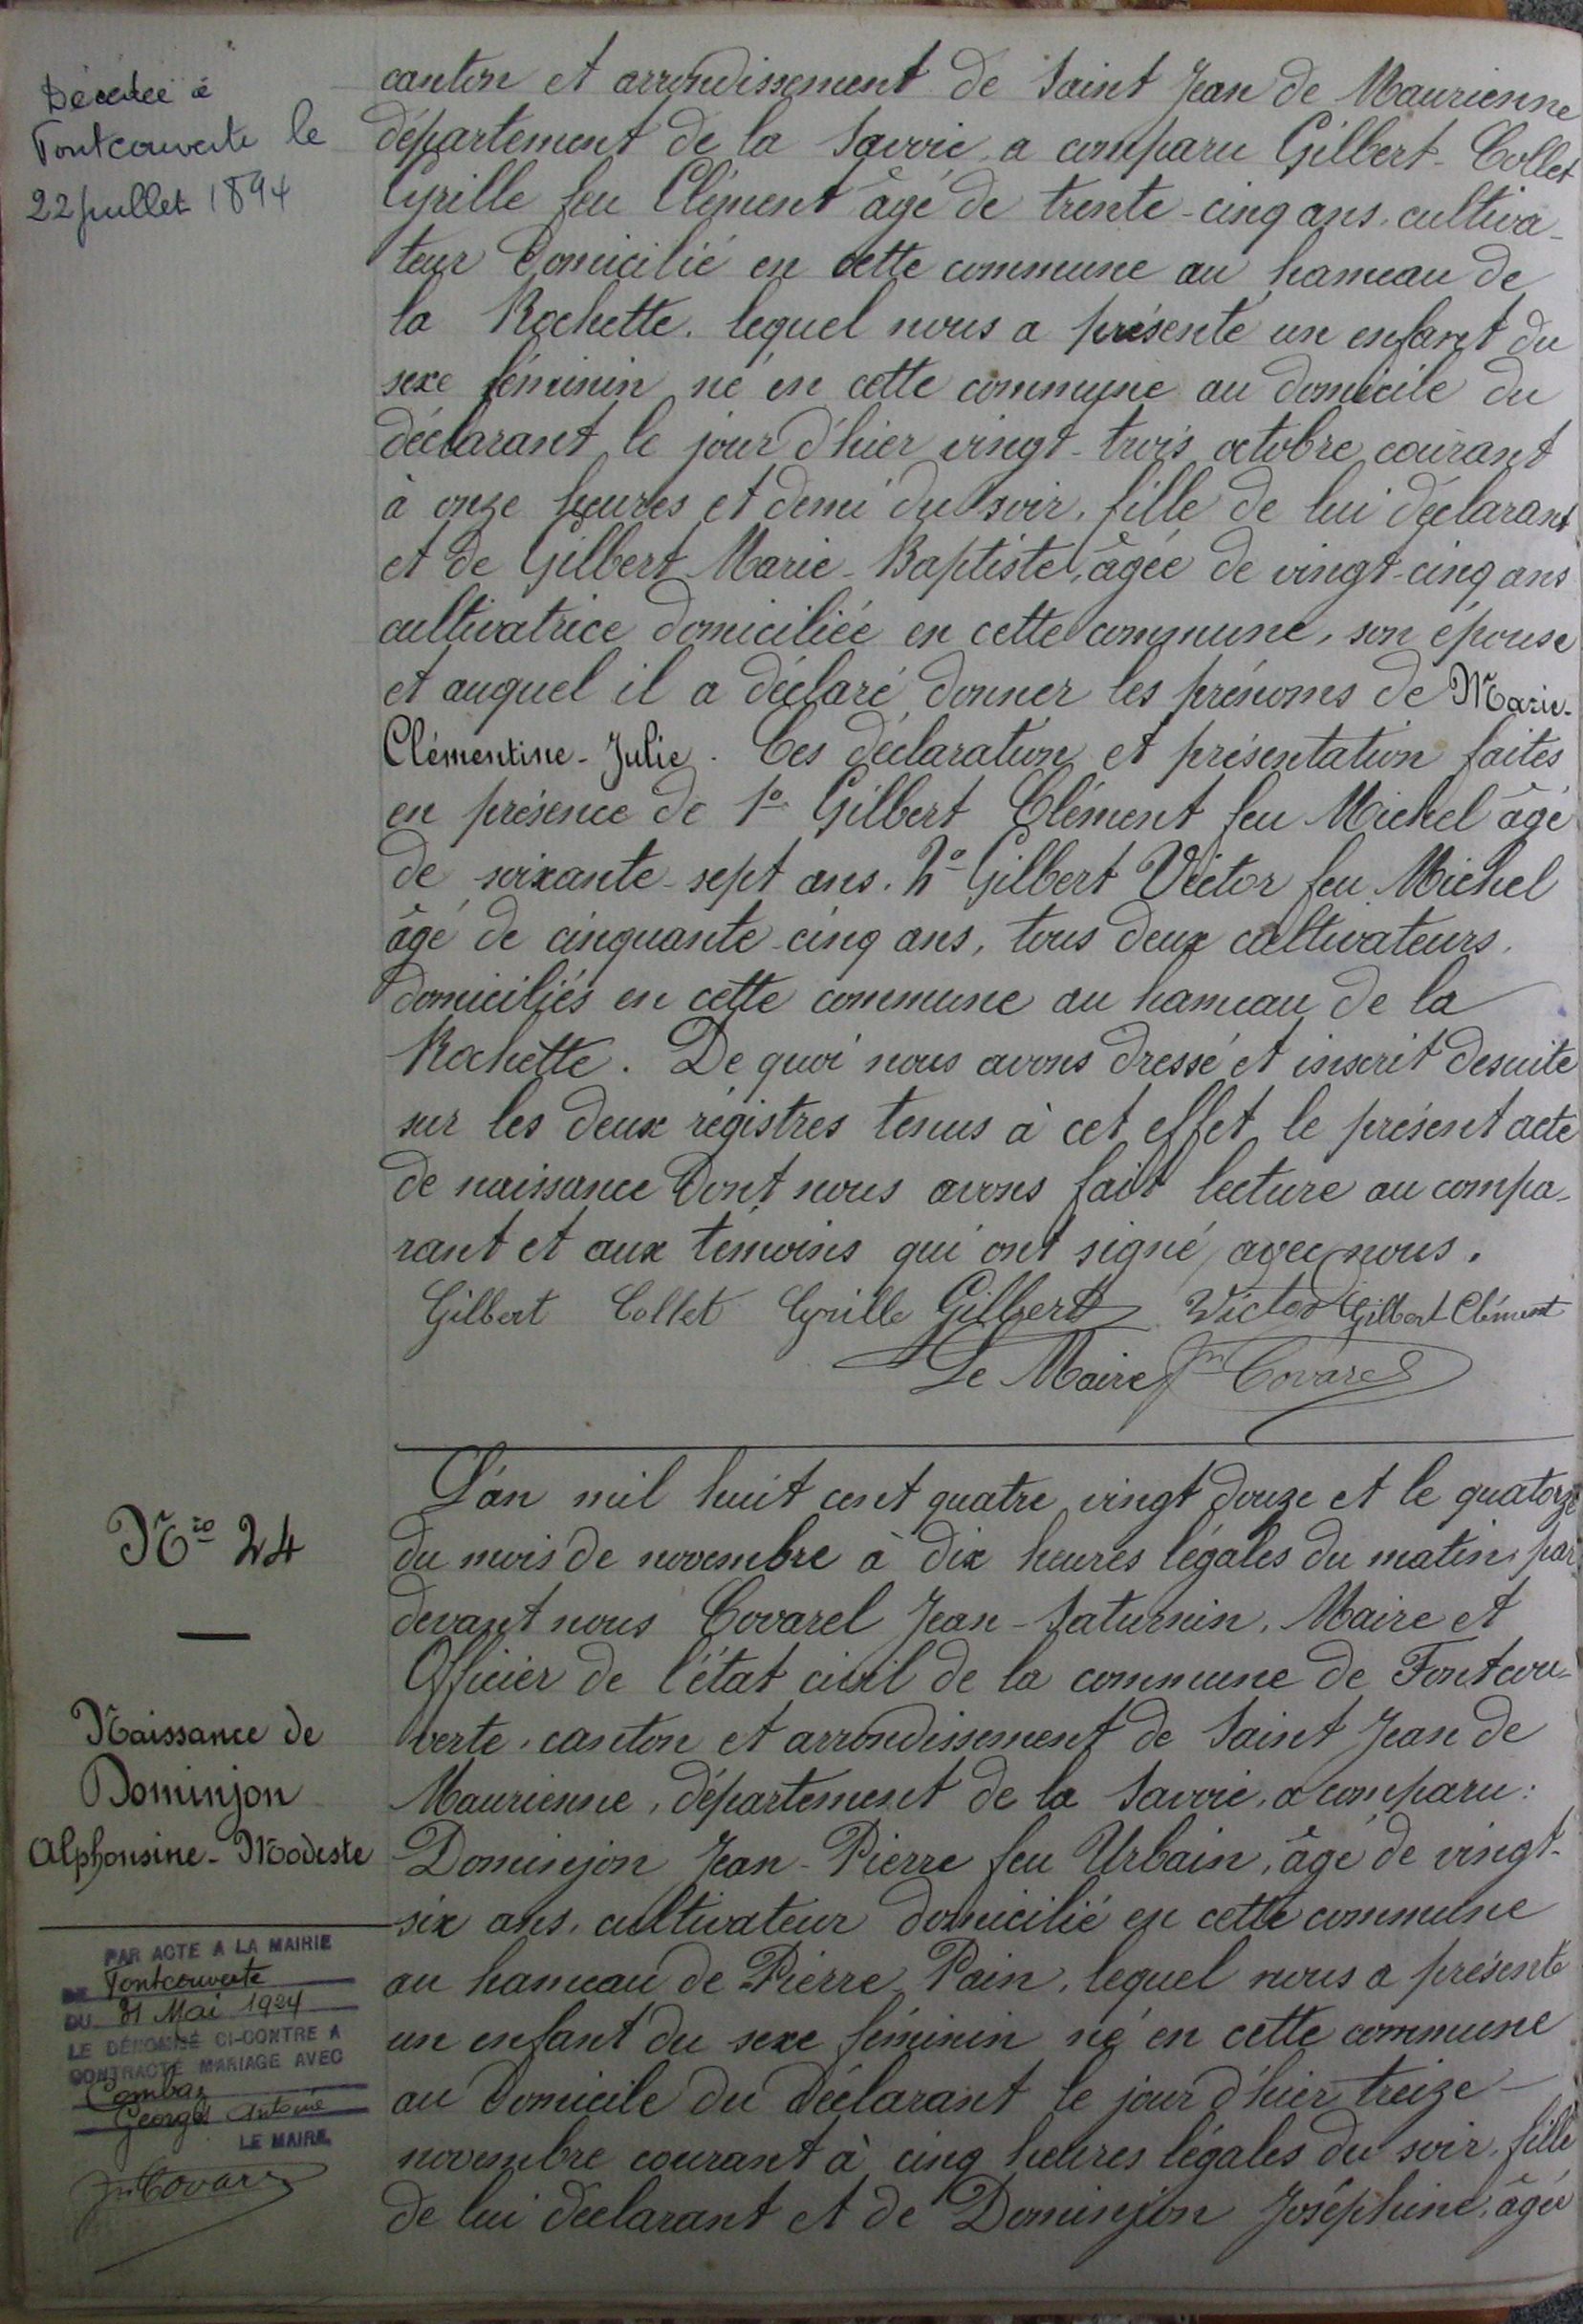 Décédée à
Fontcouverte le
22 juillet 1894
canton et arrondissement de Saint Jean de Maurienne
département de la Savoie, a comparu Gilbert-Collet
Cyrille feu Clément âgé de trente-cinq ans, cultiva-
teur domicilié en cette commune au hameau de
la Rochette. lequel nous a présenté un enfant du
sexe féminin né en cette commune au domicile du
déclarant le jour d'hier vingt-trois octobre courant
à onze heures et demi du soir, fille de lui déclarant
et de Gilbert Marie-Baptiste, âgée de vingt-cinq ans
cultivatrice domiciliée en cette commune, son épouse
et auquel il a déclaré donner les prénoms de Marie-
Clémentine-Julie. Ces déclaration et présentation faites
en présence de 1º Gilbert Clément feu Michel âgé
de soixante-sept ans. 2º Gilbert Victor feu Michel
âgé de cinquante-cinq ans, tous deux cultivateurs,
domiciliés en cette commune au hameau de la
Rochette. De quoi nous avons dressé et inscrit desuite
sur les deux régistres tenus à cet effet le présent acte
de naissance dont nous avons fait lecture au compa-
rant et aux témoins qui ont signé avec nous.
Gilbert Collet Cyrille Gilbert Victor Gilbert Clément
Le Maire Jn Covarel
Nro 24
Naissance de
Dominjon
Alphonsine-Modeste
L'an mil huit cent quatre vingt douze et le quatorze
du mois de novembre à dix heures légales du matin, par
devant nous Covarel Jean-Saturnin, Maire et
Officier de l'état civil de la commune de Fontcou-
verte, canton et arrondissement de Saint Jean de
Maurienne, département de la Savoie, a comparu:
Dominjon Jean-Pierre feu Urbain, âgé de vingt-
six ans, cultivateur domicilié en cette commune
au hameau de Pierre Pain, lequel nous a présenté
un enfant du sexe féminin né en cette commune
au domicile du déclarant le jour d'hier treize
novembre courant à cinq heures légales du soir, fille
de lui déclarant et de Dominjon Joséphine, âgée
PAR ACTE A LA MAIRIE
DE Fontcouverte
DU 31 Mai 1924
LE DÉNOMMÉ CI-CONTRE A
CONTRACTÉ MARIAGE AVEC
Combaz
Georges Antoine
LE MAIRE,
Jn Covarel